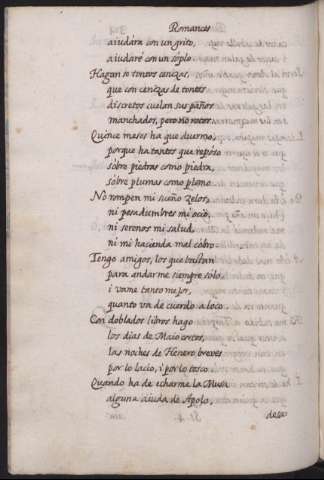 Romances
aiudára con un grito,
aiudaré con un soplo.
Hagan se tontos cenizas,
que con cenizas de tontos
discretos cuelan sus paños
manchados, pero no rotos.
Quince meses ha que duermo,
porque ha tantos que repóso
sobre piedras como piedra,
sobre plumas como plomo.
No rompen mi sueño zelos,
ni pesadumbres mi ocio,
ni serenos mi salud,
ni mi hacienda mal cobro.
Tengo amigos, los que bastan
para andarme siempre solo,
i vame tanto mejor,
quanto va de cuerdo a loco.
Con doblados libros hago
los dias de Maio cortos,
las noches de Henero breves
por lo lacio, i por lo tosco.
Quando ha de echarme la Musa
alguna aiuda de Apolo,
desa